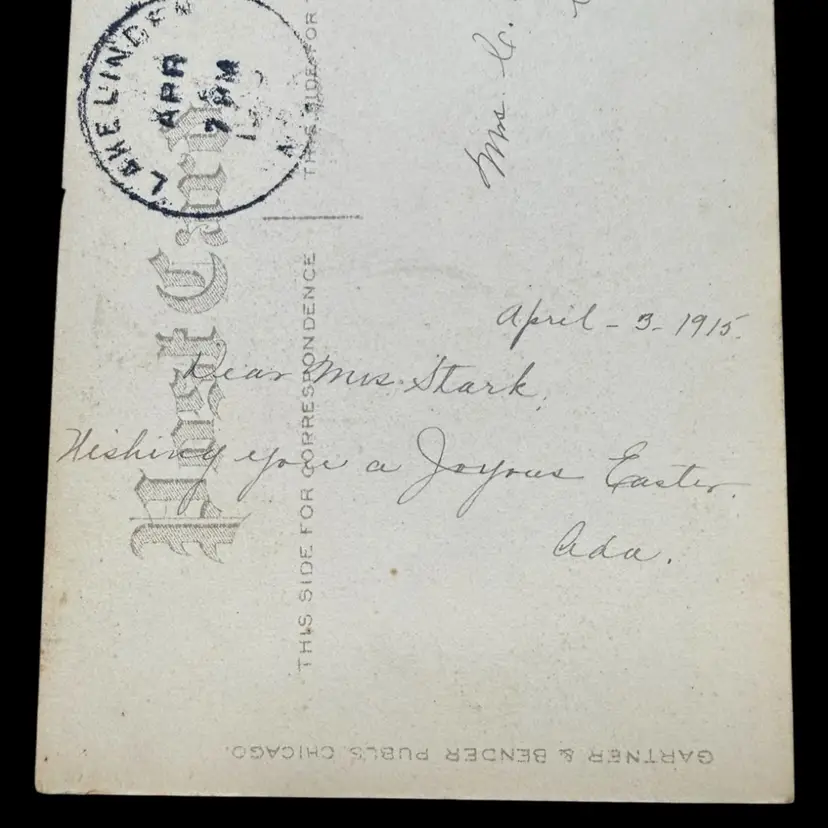 LAKE LINDEN
APR
7 PM
Post Card
THIS SIDE FOR
THIS SIDE FOR CORRESPONDENCE
Mrs. C.
April - 3 - 1915.
Dear Mrs. Stark,
Wishing you a Joyous Easter.
Ada.
GARTNER & BENDER PUBLS. CHICAGO.